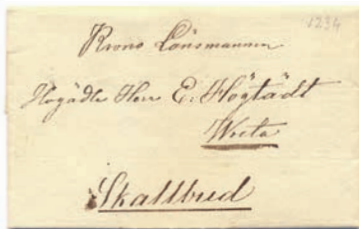 1234
Krono Länsmannen
Högädle Herr E. Högstädt
Wreta
Skallbud